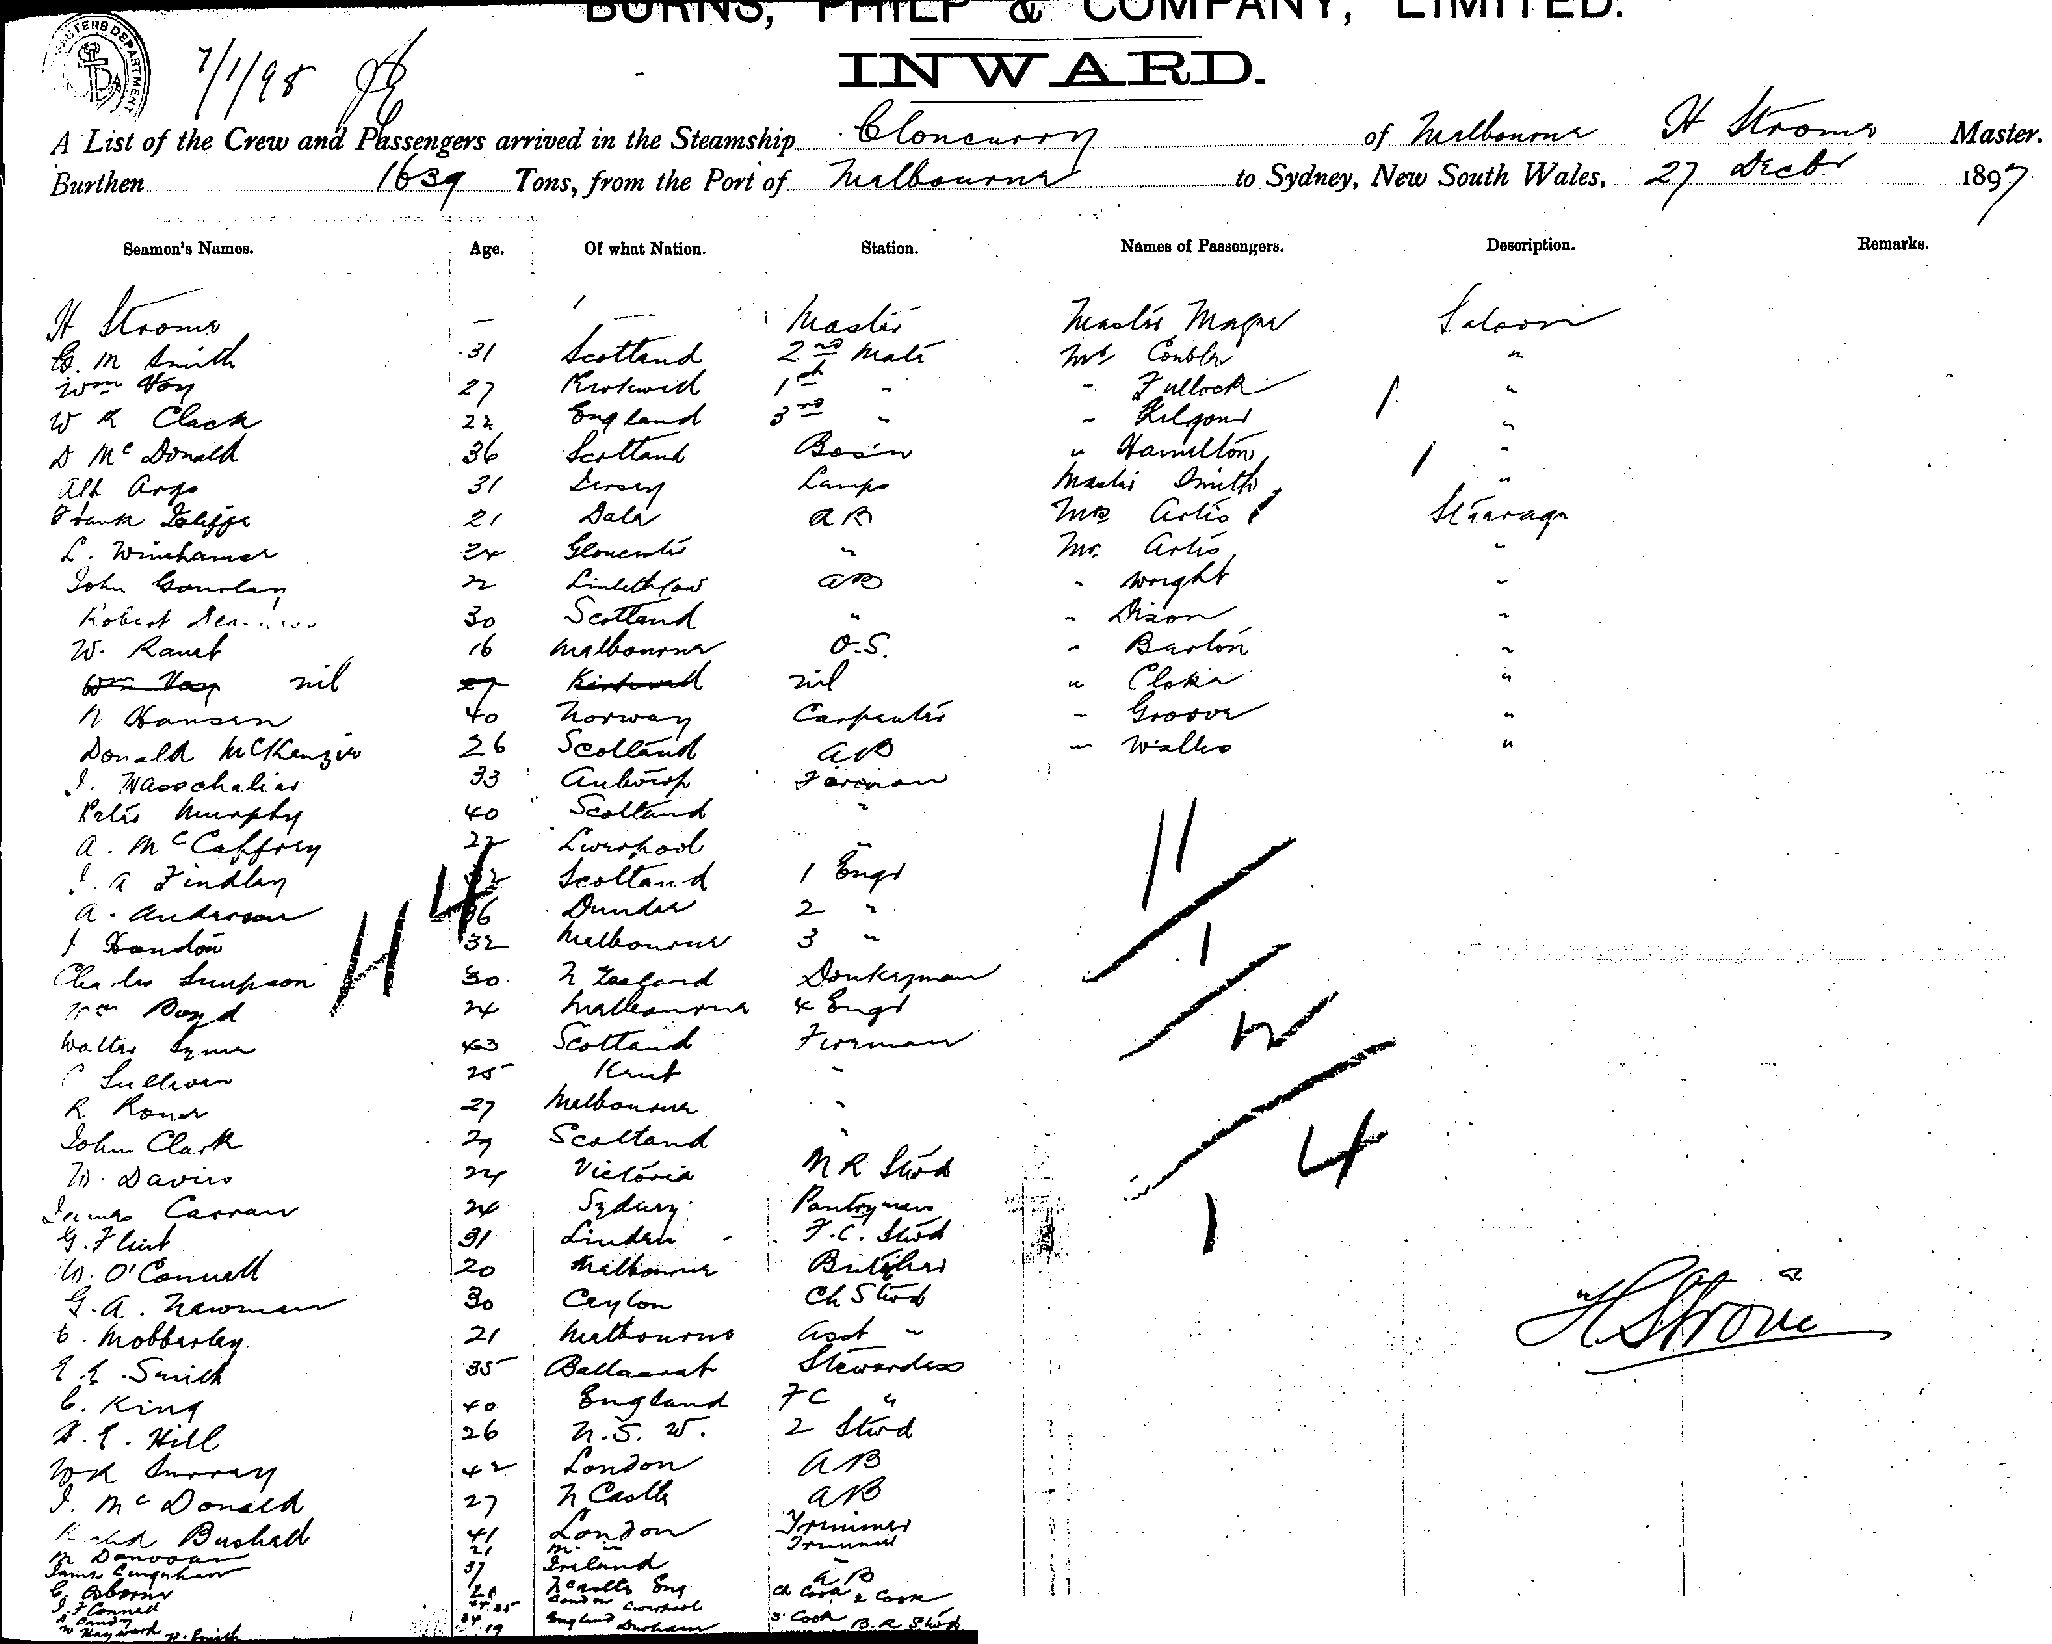 BURNS, PHILP & COMPANY, LIMITED.
INWARD.
7/1/98
A List of the Crew and Passengers arrived in the Steamship Cloncurry of Melbourne H Strome Master.
Burthen 1639 Tons, from the Port of Melbourne to Sydney, New South Wales, 27 Decbr 1897
Seamen's Names. Age. Of what Nation. Station. Names of Passengers. Description. Remarks.
H Strome — — Master Master Saloon
G. M Smith 31 Scotland 2nd Mate "
Wm Hay 27 Kirkwall 1st " " Tullock "
W R Clack 22 England 3rd " " Kilgour "
D McDonald 36 Scotland Bosin " Hamilton "
Alf Argo 31 Jersey Lamps Master Smith "
Frank 21 AB Mrs Artis Steerage
L. 24 Gloucester " Mr. Artis "
John Gourlay 22 Linlithgow AB " Wright "
Robert 30 Scotland " " Dixon "
W. 16 Melbourne O.S. " Barton "
Wm Hay nil 27 Kirkwall nil " "
N Hansen 40 Norway Carpenter " Groover "
Donald McKenzie 26 Scotland AB " Wallis "
J. 33 Antwerp Fireman
Peter Murphy 40 Scotland "
A. McCaffrey 22 Liverpool "
J. A Findlay Scotland 1 Engr
A. Anderson 36 Dundee 2 "
J 32 Melbourne 3 "
Charles Simpson 30 N Zealand Donkeyman
Wm Boyd 24 Melbourne 4 Engr
Walter Syme 43 Scotland Fireman
Sullivan 25 Kent "
R 27 Melbourne "
John Clark 29 Scotland "
W. Davies 24 Victoria M R Stwd
James Curran 24 Sydney Pantryman
G. Flint 31 F.C. Stwd
W. O'Connell 20 Melbourne Butcher
G. A. Newman 30 Ceylon Ch Stwd
C. Mobberley 21 Melbourne Asst "
E E. Smith 35 Ballaarat Stewardess
C. King 40 England FC "
H. E. Hill 26 N.S.W. 2 Stwd
Murray 42 London AB
J. McDonald 27 N Castle AB
Bushell 41 London Trimmer
M Donovan 21 Trimmer
James 37 Ireland "
C. Osborne NCastle Eng AB
J. F Connell London Liverpool Ch Cook 2 Cook
W Hayward W. Smith 34 19 England Durham 3 Cook B.R Stwd
44
11
1
12
4
1
H Strome